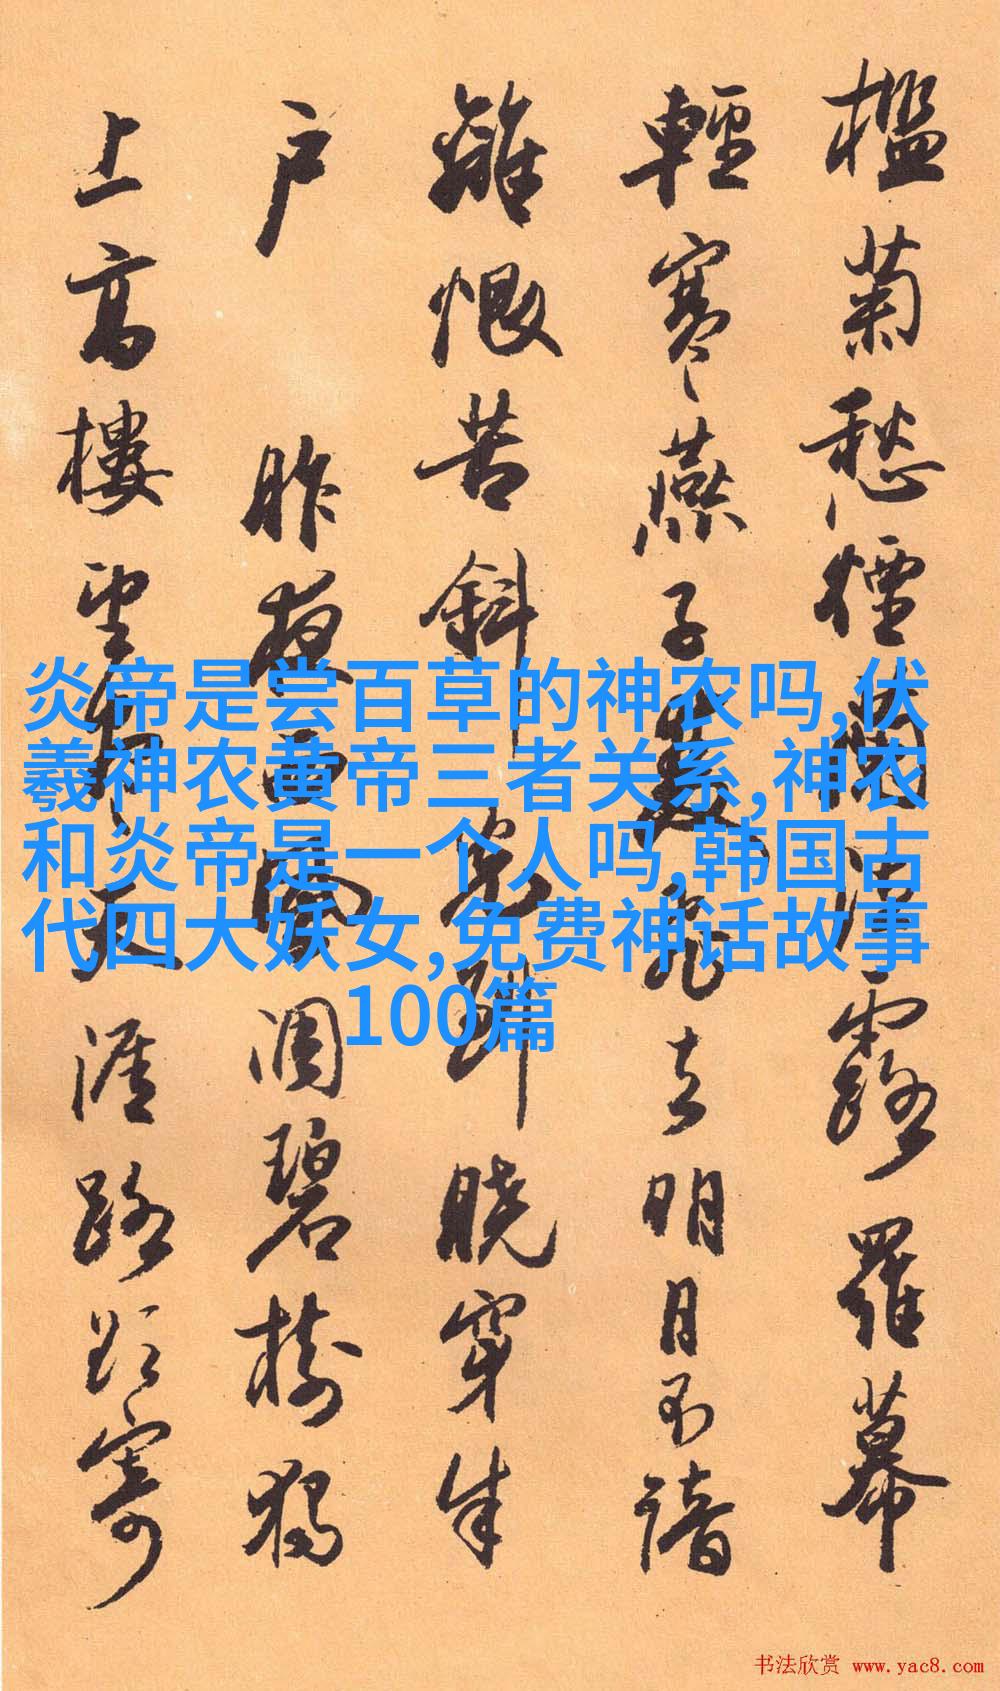 檻菊愁煙蘭泣露羅幕
輕寒燕子雙飛去明月不諳
離恨苦斜光到曉穿朱
户 昨夜西風凋碧樹獨
上高樓望盡天涯路欲寄
炎帝是尝百草的神农吗,伏
羲神农黄帝三者关系,神农
和炎帝是一个人吗,韩国古
代四大妖女,免费神话故事
100篇
书法欣赏 www.yac8.com